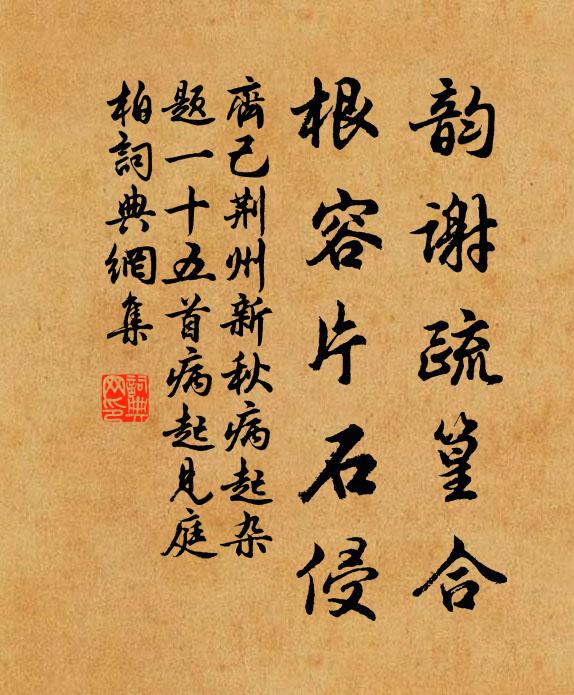 韵谢疏篁合
根容片石侵
齊己荆州新秋病起杂
题一十五首病起见庭
柏詞典網集
詞典
网印